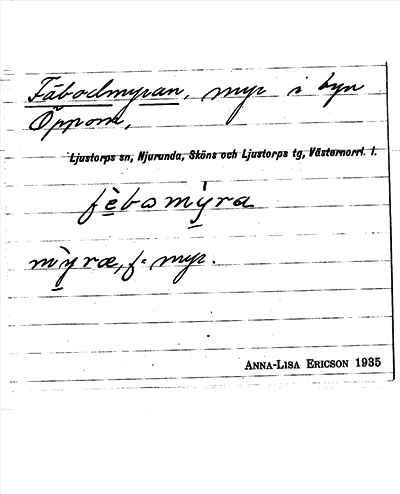 Fäbodmyran, myr i byn
Öppom,
Ljustorps sn, Njurunda, Sköns och Ljustorps tg, Västernorrl. l.
fèbomỳra
mỳræ, f. myr.
ANNA-LISA ERICSON 1935